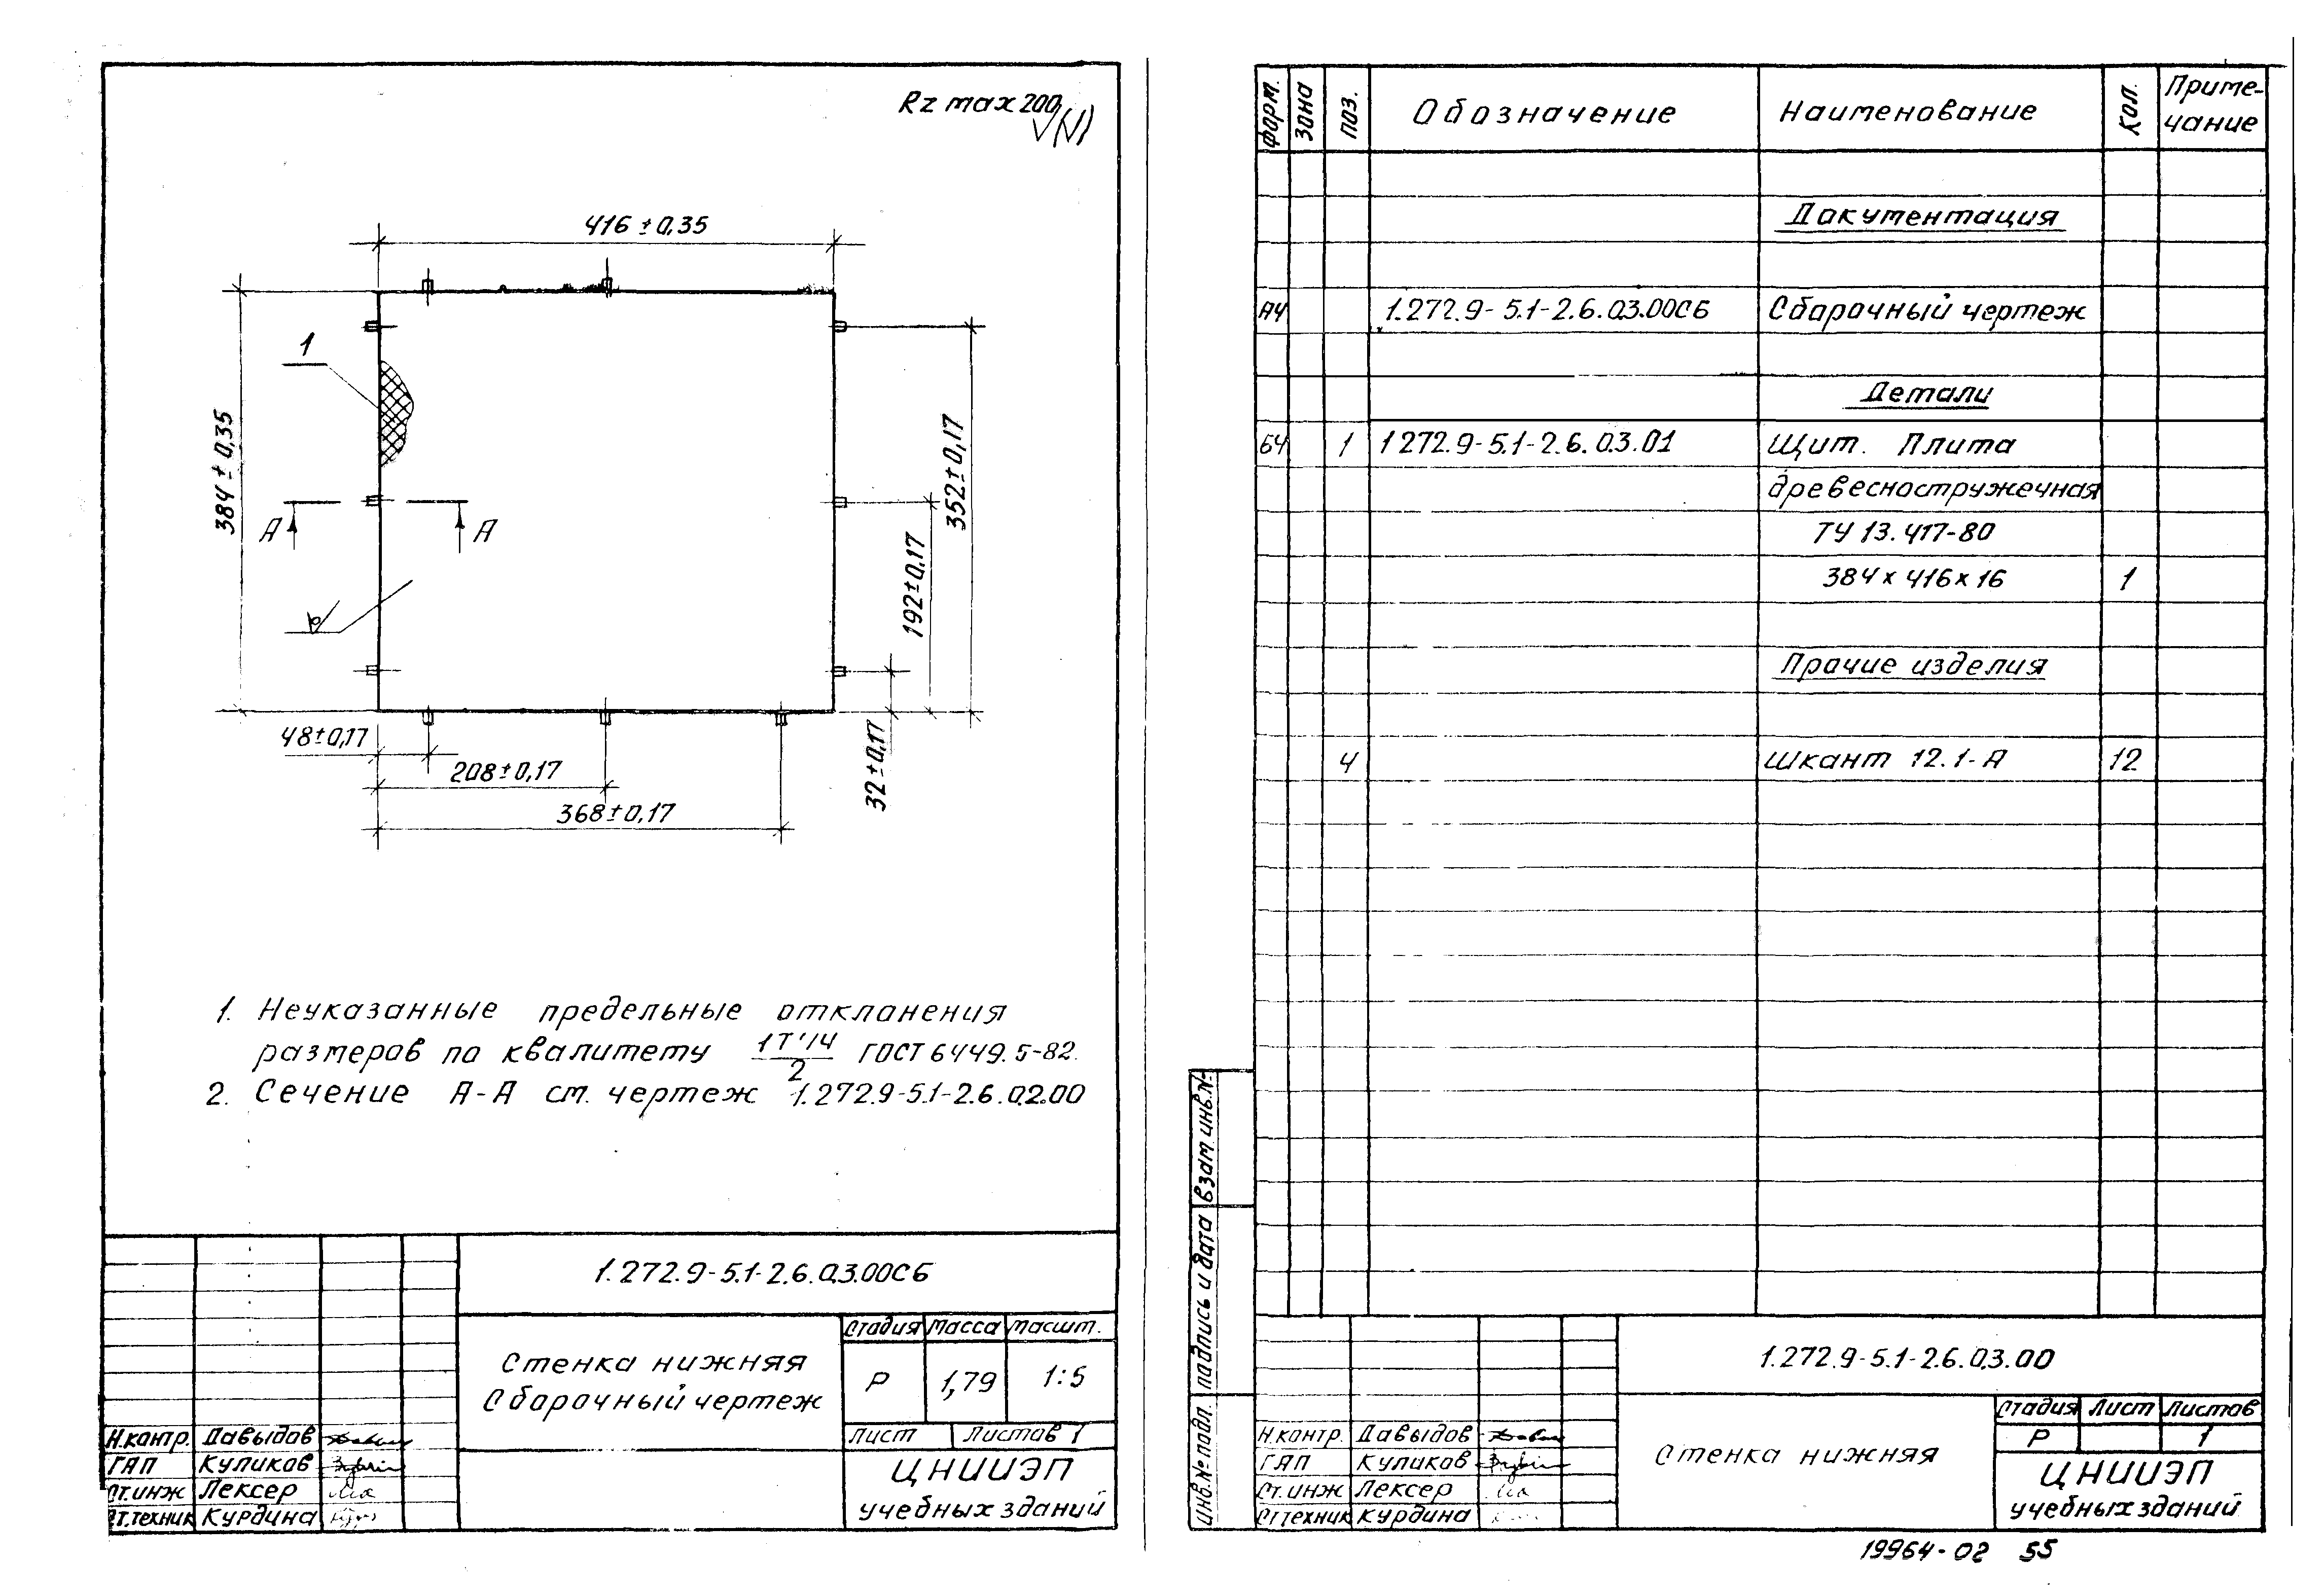 Rz max 200
416 ± 0,35
1
384 ± 0,35
А А
352 ± 0,17
192 ± 0,17
32 ± 0,17
48 ± 0,17
208 ± 0,17
368 ± 0,17
1. Неуказанные предельные отклонения
размеров по квалитету IT'14/2 ГОСТ 6449.5-82.
2. Сечение А-А см. чертеж 1.272.9-5.1-2.6.02.00
1.272.9-5.1-2.6.03.00СБ
Стенка нижняя
Сборочный чертеж
Стадия Масса Масшт.
Р 1,79 1:5
Лист Листов 1
Н.контр. Давыдов
ГАП Куликов
Ст.инж Лексер
Ст.техник Курдина
ЦНИИЭП
учебных зданий
Форм. Зона Поз. Обозначение Наименование Кол. Приме-
чание
Документация
А4 1.272.9-5.1-2.6.03.00СБ Сборочный чертеж
Детали
БЧ 1 1 272.9-5.1-2.6.03.01 Щит. Плита
древесностружечная
ТУ 13.417-80
384 х 416 х 16 1
Прочие изделия
4 Шкант 12.1-А 12
Инв.№ подл. Подпись и дата Взам инв.№
1.272.9-5.1-2.6.03.00
Стенка нижняя
Стадия Лист Листов
Р 1
Н.контр. Давыдов
ГАП Куликов
Ст.инж Лексер
Ст техник Курдина
ЦНИИЭП
учебных зданий
19964-02 55